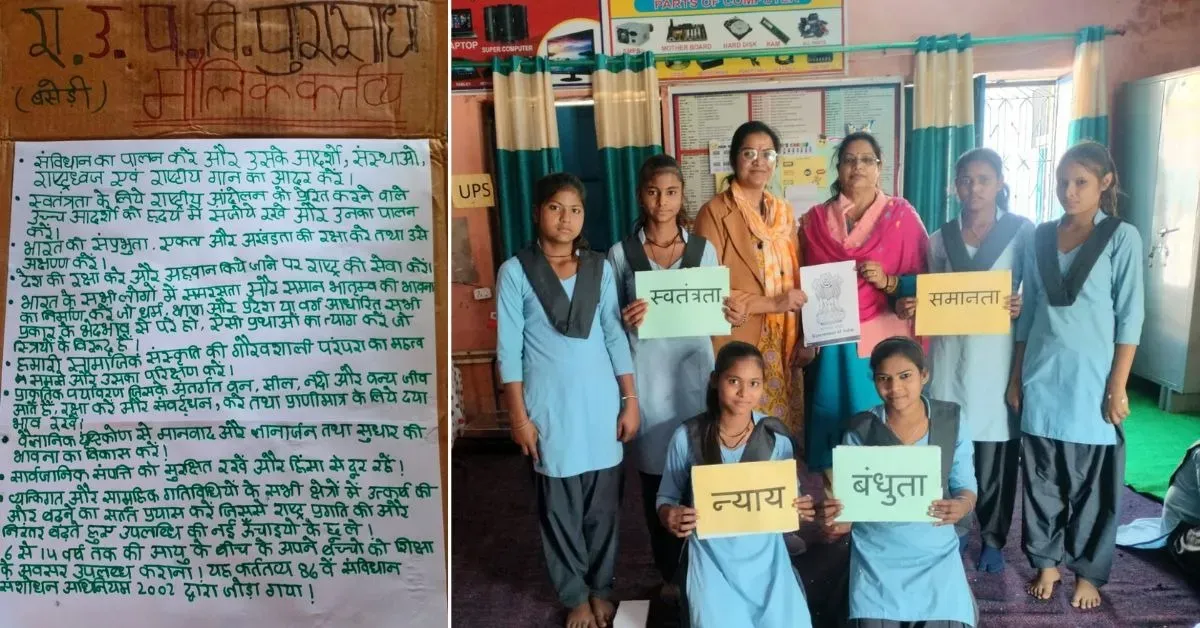 रा. उ. प्रा. वि. पुरासाध
(बसेड़ी) मौलिक कर्तव्य
• संविधान का पालन करें और उसके आदर्शो, संस्थाओं,
राष्ट्रध्वज एवं राष्ट्रीय गान का आदर करें।
• स्वतंत्रता के लिये राष्ट्रीय आंदोलन को प्रेरित करने वाले
उच्च आदर्शो को हृदय में संजोये रखे और उनका पालन
करें।
• भारत की संप्रभुता, एकता और अखंडता की रक्षा करे तथा उसे
अक्षुण्ण करें।
• देश की रक्षा करे और अहवान किये जाने पर राष्ट्र की सेवा करे।
• भारत के सभी लोगों में समरसता और समान भातृत्व की भावना
का निर्माण करें जो धर्म, भाषा और प्रदेश या वर्ग आधारित सभी
प्रकार के भेदभाव से परे हो, ऐसी प्रथाओं का त्याग करे जो
स्त्रियों के विरूद्ध है।
हमारी सामाजिक संस्कृति की गौरवशाली परंपरा का महत्व
समझे और उसका परिक्षण करें।
प्राकृतिक पर्यावरण जिसके अंतर्गत वन, झील, नदी और वन्य जीव
आते है, रक्षा करें और संवर्द्धन, करे तथा प्राणीमात्र के लिये दया
भाव रखें।
• वैज्ञानिक दृष्टिकोण से मानवाद और ज्ञानार्जन तथा सुधार की
भावना का विकास करें।
• सार्वजानिक संपत्ति को सुरक्षित रखें और हिंसा से दूर रहें।
• व्यक्तिगत और सामूहिक गतिविधियों के सभी क्षेत्रों में उत्कर्ष की
और बढ़ने का सतत प्रयास करें जिससे राष्ट्र प्रगति की और
निरंतर बढ़ते हुए उपलब्धि की नई ऊँचाइयों के छू ले।
6 से 14 वर्ष तक की आयु के बीच के अपने बच्चों को शिक्षा
के अवसर उपलब्ध कराना। यह कर्तव्य 86 वें संविधान
संशोधन अधिनियम 2002 द्वारा जोड़ा गया।
LAPTOP
SUPER COMPUTER
PARTS OF COMPUTER
SMPS
MOTHER BOARD
HARD DISK
RAM
UPS
स्वतंत्रता
समानता
न्याय
बंधुता